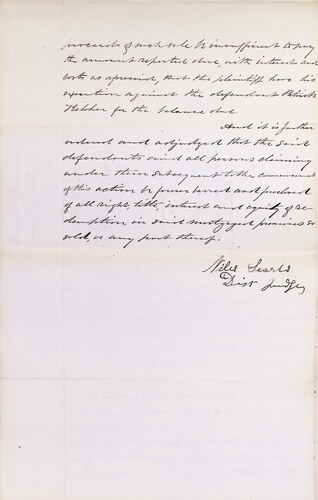 proceeds of such sale be insufficient to pay
the amount reported due, with interest and
costs as aforesaid, that the plaintiff have his
execution against the defendant Patrick
Kelcher for the balance due.
And it is further
ordered and adjudged that the said
defendants and all persons claiming
under them subsequent to the commencement
of this action be forever barred and foreclosed
of all right, title, interest and equity of re-
demption in said mortgaged premises so
sold, or any part thereof.
Niles Searls
Dist Judge